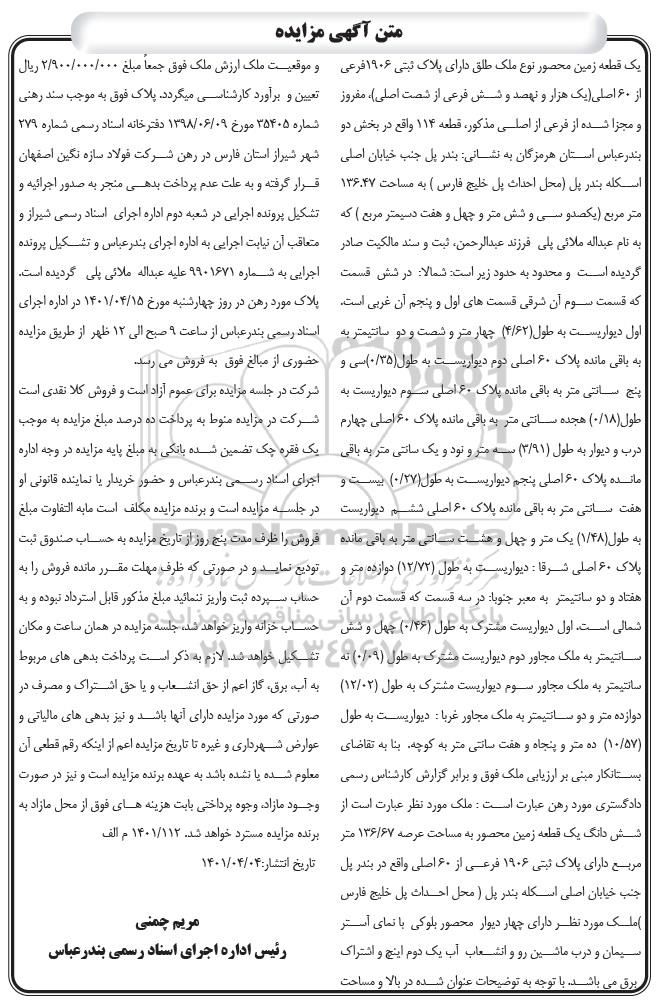 متن آگهی مزایده
یک قطعه زمین محصور نوع ملک طلق دارای پلاک ثبتی ۱۹۰۶فرعی
از ۶۰ اصلی(یک هزار و نهصد و شش فرعی از شصت اصلی)، مفروز
و مجزا شده از فرعی از اصلی مذکور، قطعه ۱۱۴ واقع در بخش دو
بندرعباس استان هرمزگان به نشانی: بندر پل جنب خیابان اصلی
اسکله بندر پل (محل احداث پل خلیج فارس ) به مساحت ۱۳۶.۴۷
متر مربع (یکصدو سی و شش متر و چهل و هفت دسیمتر مربع ) که
به نام عبداله ملائی پلی فرزند عبدالرحمن، ثبت و سند مالکیت صادر
گردیده است و محدود به حدود زیر است: شمالا: در شش قسمت
که قسمت سوم آن شرقی قسمت های اول و پنجم آن غربی است.
اول دیواریست به طول(۴/۶۲) چهار متر و شصت و دو سانتیمتر به
به باقی مانده پلاک ۶۰ اصلی دوم دیواریست به طول(۰/۳۵)سی و
پنج سانتی متر به باقی مانده پلاک ۶۰ اصلی سوم دیواریست به
طول(۰/۱۸) هجده سانتی متر به باقی مانده پلاک ۶۰ اصلی چهارم
درب و دیوار به طول (۳/۹۱) سه متر و نود و یک سانتی متر به باقی
مانده پلاک ۶۰ اصلی پنجم دیواریست به طول(۰/۲۷) بیست و
هفت سانتی متر به باقی مانده پلاک ۶۰ اصلی ششم دیواریست
به طول(۱/۴۸) یک متر و چهل و هشت سانتی متر به باقی مانده
پلاک ۶۰ اصلی شرقا : دیواریست به طول (۱۲/۷۲) دوازده متر و
هفتاد و دو سانتیمتر به معبر جنوبا: در سه قسمت که قسمت دوم آن
شمالی است. اول دیواریست مشترک به طول (۰/۴۶) چهل و شش
سانتیمتر به ملک مجاور دوم دیواریست مشترک به طول (۰/۰۹) نه
سانتیمتر به ملک مجاور سوم دیواریست مشترک به طول (۱۲/۰۲)
دوازده متر و دو سانتیمتر به ملک مجاور غربا : دیواریست به طول
(۱۰/۵۷) ده متر و پنجاه و هفت سانتی متر به کوچه. بنا به تقاضای
بستانکار مبنی بر ارزیابی ملک فوق و برابر گزارش کارشناس رسمی
دادگستری مورد رهن عبارت است : ملک مورد نظر عبارت است از
شش دانگ یک قطعه زمین محصور به مساحت عرصه ۱۳۶/۶۷ متر
مربع دارای پلاک ثبتی ۱۹۰۶ فرعی از ۶۰ اصلی واقع در بندر پل
جنب خیابان اصلی اسکله بندر پل ( محل احداث پل خلیج فارس
)ملک مورد نظر دارای چهار دیوار محصور بلوکی با نمای آستر
سیمان و درب ماشین رو و انشعاب آب یک دوم اینچ و اشتراک
برق می باشد. با توجه به توضیحات عنوان شده در بالا و مساحت
و موقعیت ملک ارزش ملک فوق جمعاً مبلغ ۲/۹۰۰/۰۰۰/۰۰۰ ریال
تعیین و برآورد کارشناسی میگردد. پلاک فوق به موجب سند رهنی
شماره ۳۵۴۰۵ مورخ ۱۳۹۸/۰۶/۰۹ دفترخانه اسناد رسمی شماره ۲۷۹
شهر شیراز استان فارس در رهن شرکت فولاد سازه نگین اصفهان
قرار گرفته و به علت عدم پرداخت بدهی منجر به صدور اجرائیه و
تشکیل پرونده اجرایی در شعبه دوم اداره اجرای اسناد رسمی شیراز و
متعاقب آن نیابت اجرایی به اداره اجرای بندرعباس و تشکیل پرونده
اجرایی به شماره ۹۹۰۱۶۷۱ علیه عبداله ملائی پلی گردیده است.
پلاک مورد رهن در روز چهارشنبه مورخ ۱۴۰۱/۰۴/۱۵ در اداره اجرای
اسناد رسمی بندرعباس از ساعت ۹ صبح الی ۱۲ ظهر از طریق مزایده
حضوری از مبالغ فوق به فروش می رسد.
شرکت در جلسه مزایده برای عموم آزاد است و فروش کلا نقدی است
شرکت در مزایده منوط به پرداخت ده درصد مبلغ مزایده به موجب
یک فقره چک تضمین شده بانکی به مبلغ پایه مزایده در وجه اداره
اجرای اسناد رسمی بندرعباس و حضور خریدار یا نماینده قانونی او
در جلسه مزایده است و برنده مزایده مکلف است مابه التفاوت مبلغ
فروش را ظرف مدت پنج روز از تاریخ مزایده به حساب صندوق ثبت
تودیع نماید و در صورتی که ظرف مهلت مقرر مانده فروش را به
حساب سپرده ثبت واریز ننمائید مبلغ مذکور قابل استرداد نبوده و به
حساب خزانه واریز خواهد شد، جلسه مزایده در همان ساعت و مکان
تشکیل خواهد شد. لازم به ذکر است پرداخت بدهی های مربوط
به آب، برق، گاز اعم از حق انشعاب و یا حق اشتراک و مصرف در
صورتی که مورد مزایده دارای آنها باشد و نیز بدهی های مالیاتی و
عوارض شهرداری و غیره تا تاریخ مزایده اعم از اینکه رقم قطعی آن
معلوم شده یا نشده باشد به عهده برنده مزایده است و نیز در صورت
وجود مازاد، وجوه پرداختی بابت هزینه های فوق از محل مازاد به
برنده مزایده مسترد خواهد شد. ۱۴۰۱/۱۱۲ م الف
تاریخ انتشار:۱۴۰۱/۰۴/۰۴
مریم چمنی
رئیس اداره اجرای اسناد رسمی بندرعباس
ParsNamadData